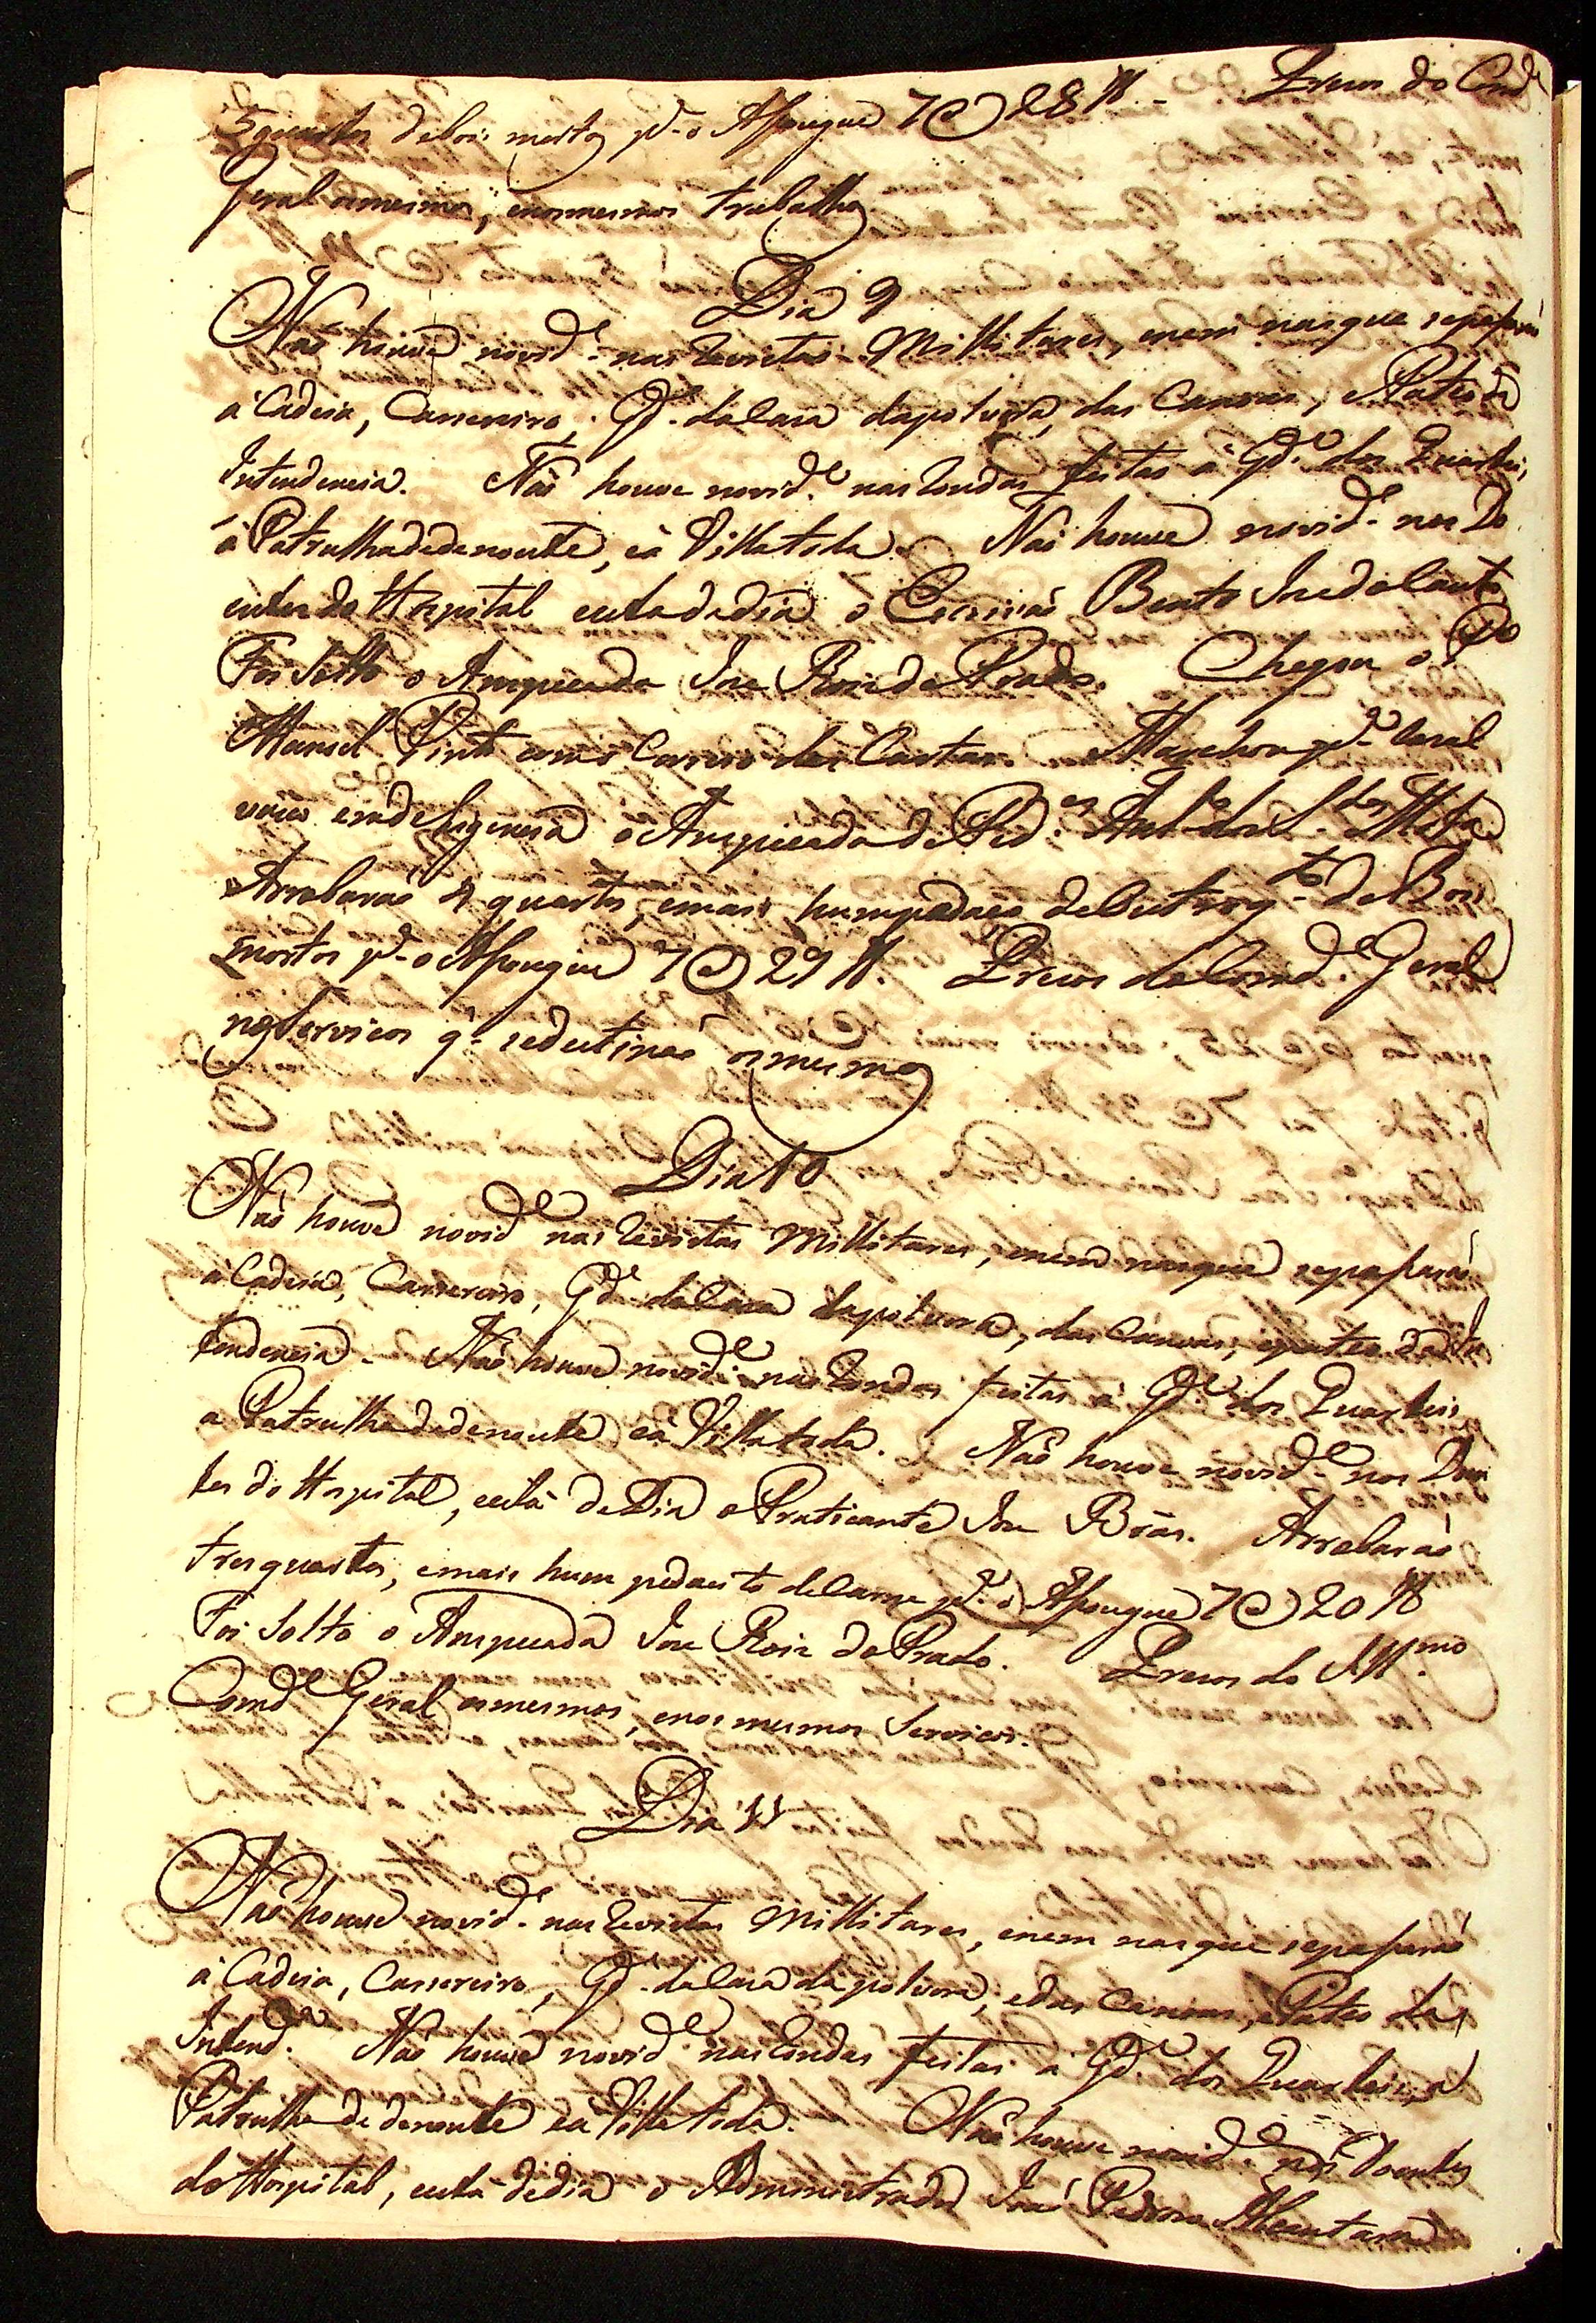 5 quartos de boi mortos p.ª o Asougue 7@28 ℔ - Prezos do Comd.e
Geral os mesmos, e nos mesmos trabalhos
Dia 9
Naõ houve novid.e nas Revistas Millitares, e nem nas que se passaraõ
á Cadeia, Carsereiro, Gd.ª da Casa da polvora, das Canoas, e Pateo da
Intendencia. Naõ houve novid.e nas Rondas feitas á Gd.ª dos Quarteis,
á Patrulha de de noute, e á Villa toda. Naõ houve novid.e nos Do
entes do Hospital está de dia o Escrivaõ Bento Joze do Canto
Foi Solto o Anspeçada Joze Roiz do Prado. Chegou o P.º
Manoel Pinto com o Correio das Cartas. Marchou p.ª
em deligencia o Anspeçada de Ped.es Ant.º dos S.tos
Arrobaraõ 4 quartos, e mais hum pedaço de outro q.to de Boi
mortos p.ª o Asougue 7@29 ℔. Prezos do Comd.e Geral
nos Servicos q.e se destinaõ os mesmos
Dia 10
Naõ houve novid.e nas Revistas Millitares, e nem nas que se passaraõ
á Cadeia, Carsereiro, Gd.ª da Casa da polvora, das Canoas, e pateo da In
tendencia. Naõ houve novid.e nas Rondas feitas á Gd.ª dos Quarteis,
a Patrulha de de noute e á Villa toda. Naõ houve novid.e nos Doen
tes do Hospital, está de Dia o Praticante Joze Brás. Arrobaraõ
tres quartos, e mais hum pedasito de Carne p.ª o Asougue 7@20 ℔
Foi Solto o Anspeçada Joze Roiz do Prado. Prezos do Ill.mo
Comd.e Geral os mesmos, e nos mesmos Servicos.
Dia 11
Naõ houve novid.e nas Revistas Millitares, e nem nas que se passaraõ
á Cadeia, Carsereiro, Gd.ª da Casa da polvora, e das Canoas, e Pateo da
Intend.ª Naõ houve novid.e nas Rondas feitas á Gd.ª dos Quarteis, a
Patrulha de de noute e á Villa toda. Naõ houve novid.e nos Doentes
do Hospital, está de dia o Administrador Joze Pedro Alcantara